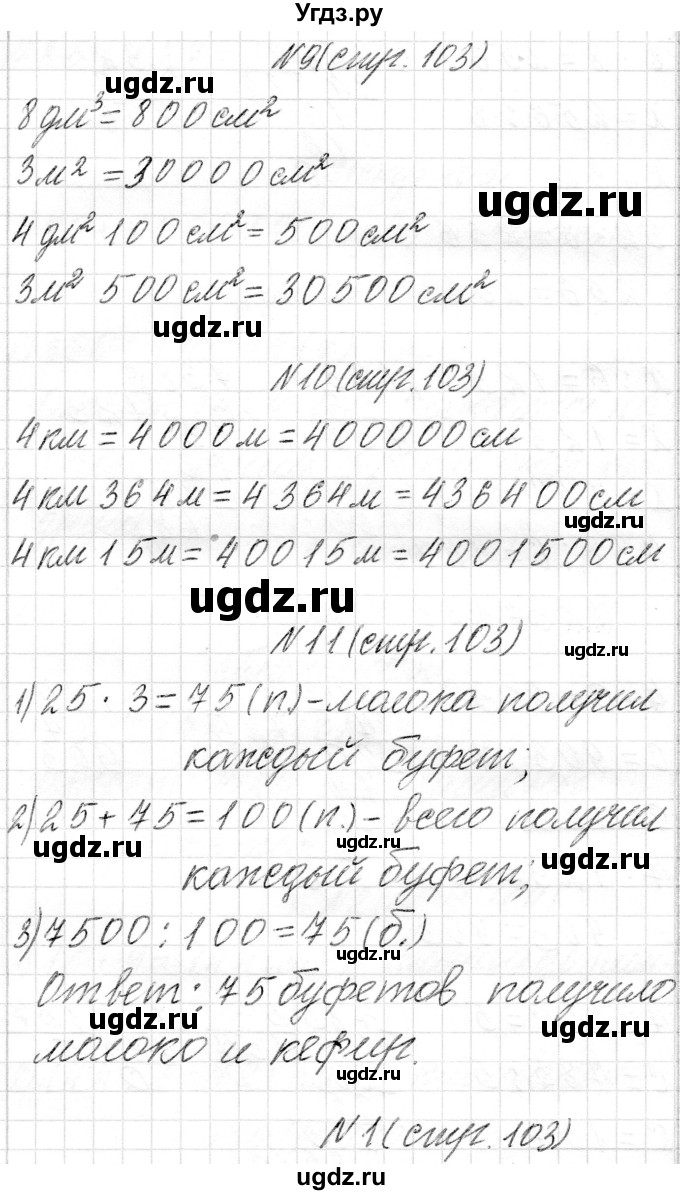 Угдз.ру
N9(стр. 103)
ugdz.ru
8дм³ = 800 см²
3м² = 30000 см²
ugdz.ru
4 дм² 100 см² = 500 см²
3м² 500 см² = 30500 см²
ugdz.ru
N10(стр. 103)
4 км = 4000 м = 400000 см
4 км 364 м = 4364 м = 436400 см
ugdz.ru
4 км 15 м = 40015 м = 4001500 см
ugdz.ru
N11(стр. 103)
ugdz.ru
1) 25 · 3 = 75 (п.) - молока получил
каждый буфет;
2) 25 + 75 = 100 (п.) - всего получил
ugdz.ru ugdz.ru
каждый буфет;
3) 7500 : 100 = 75 (б.)
ugdz.ru
Ответ: 75 буфетов получило
ugdz.ru ugdz.ru
молоко и кефир.
ugdz.ru
N1(стр. 103)
ugdz.ru